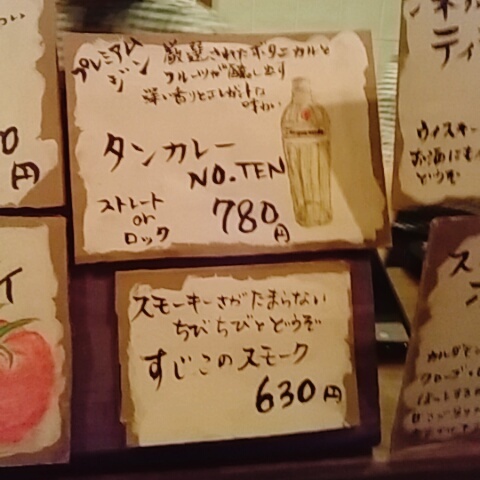 プレミアム
ジン
厳選されたボタニカルと
フルーツが醸し出す
深い香りとエレガントな
味わい
タンカレー
NO.TEN
ストレート
or
ロック
780円
スモーキーさがたまらない
ちびちびとどうぞ
すじこのスモーク
630円
円
イ
ティ
ウィスキー
お酒にも
どうぞ
ス